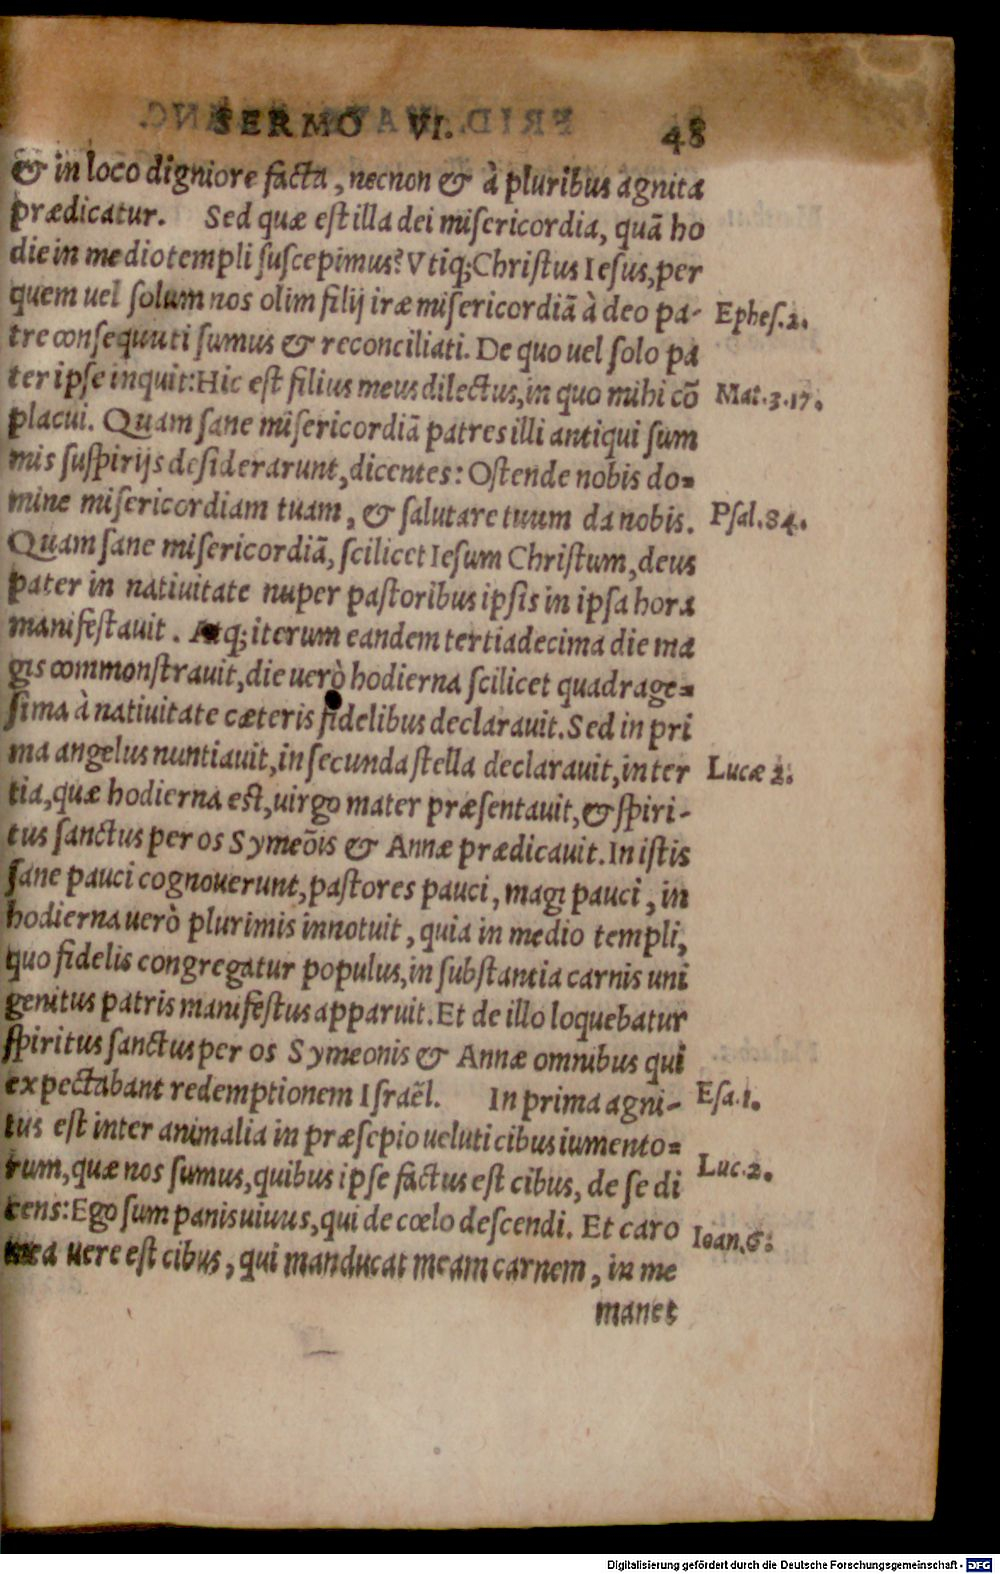 SERMO VI. 48
& in loco digniore facta, necnon & à pluribus agnita
prædicatur. Sed quæ est illa dei misericordia, quā ho
die in medio templi suscepimus? Vtiq; Christus Iesus, per
quem uel solum nos olim filij iræ misericordiā à deo pa-
Ephes.2.
tre consequuti sumus & reconciliati. De quo uel solo pa
ter ipse inquit: Hic est filius meus dilectus, in quo mihi cō
Mat.3.17.
placui. Quam sane misericordiā patres illi antiqui sum
mis suspirijs desiderarunt, dicentes: Ostende nobis do=
mine misericordiam tuam, & salutare tuum da nobis.
Psal.84.
Quam sane misericordiā, scilicet Iesum Christum, deus
pater in natiuitate nuper pastoribus ipsis in ipsa hora
manifestauit. Atq; iterum eandem tertiadecima die ma
gis commonstrauit, die uerò hodierna scilicet quadrage=
sima à natiuitate cæteris fidelibus declarauit. Sed in pri
ma angelus nuntiauit, in secunda stella declarauit, in ter
Lucæ 2.
tia, quæ hodierna est, uirgo mater præsentauit, & spiri-
tus sanctus per os Symeōis & Annæ prædicauit. In istis
sane pauci cognouerunt, pastores pauci, magi pauci, in
hodierna uerò plurimis innotuit, quia in medio templi,
quo fidelis congregatur populus, in substantia carnis uni
genitus patris manifestus apparuit. Et de illo loquebatur
spiritus sanctus per os Symeonis & Annæ omnibus qui
expectabant redemptionem Israël. In prima agni-
Esa.1.
tus est inter animalia in præsepio ueluti cibus iumento=
rum, quæ nos sumus, quibus ipse factus est cibus, de se di
Luc.2.
cens: Ego sum panis uiuus, qui de cœlo descendi. Et caro
Ioan.6.
mea uere est cibus, qui manducat meam carnem, in me
manet
Digitalisierung gefördert durch die Deutsche Forschungsgemeinschaft - DFG